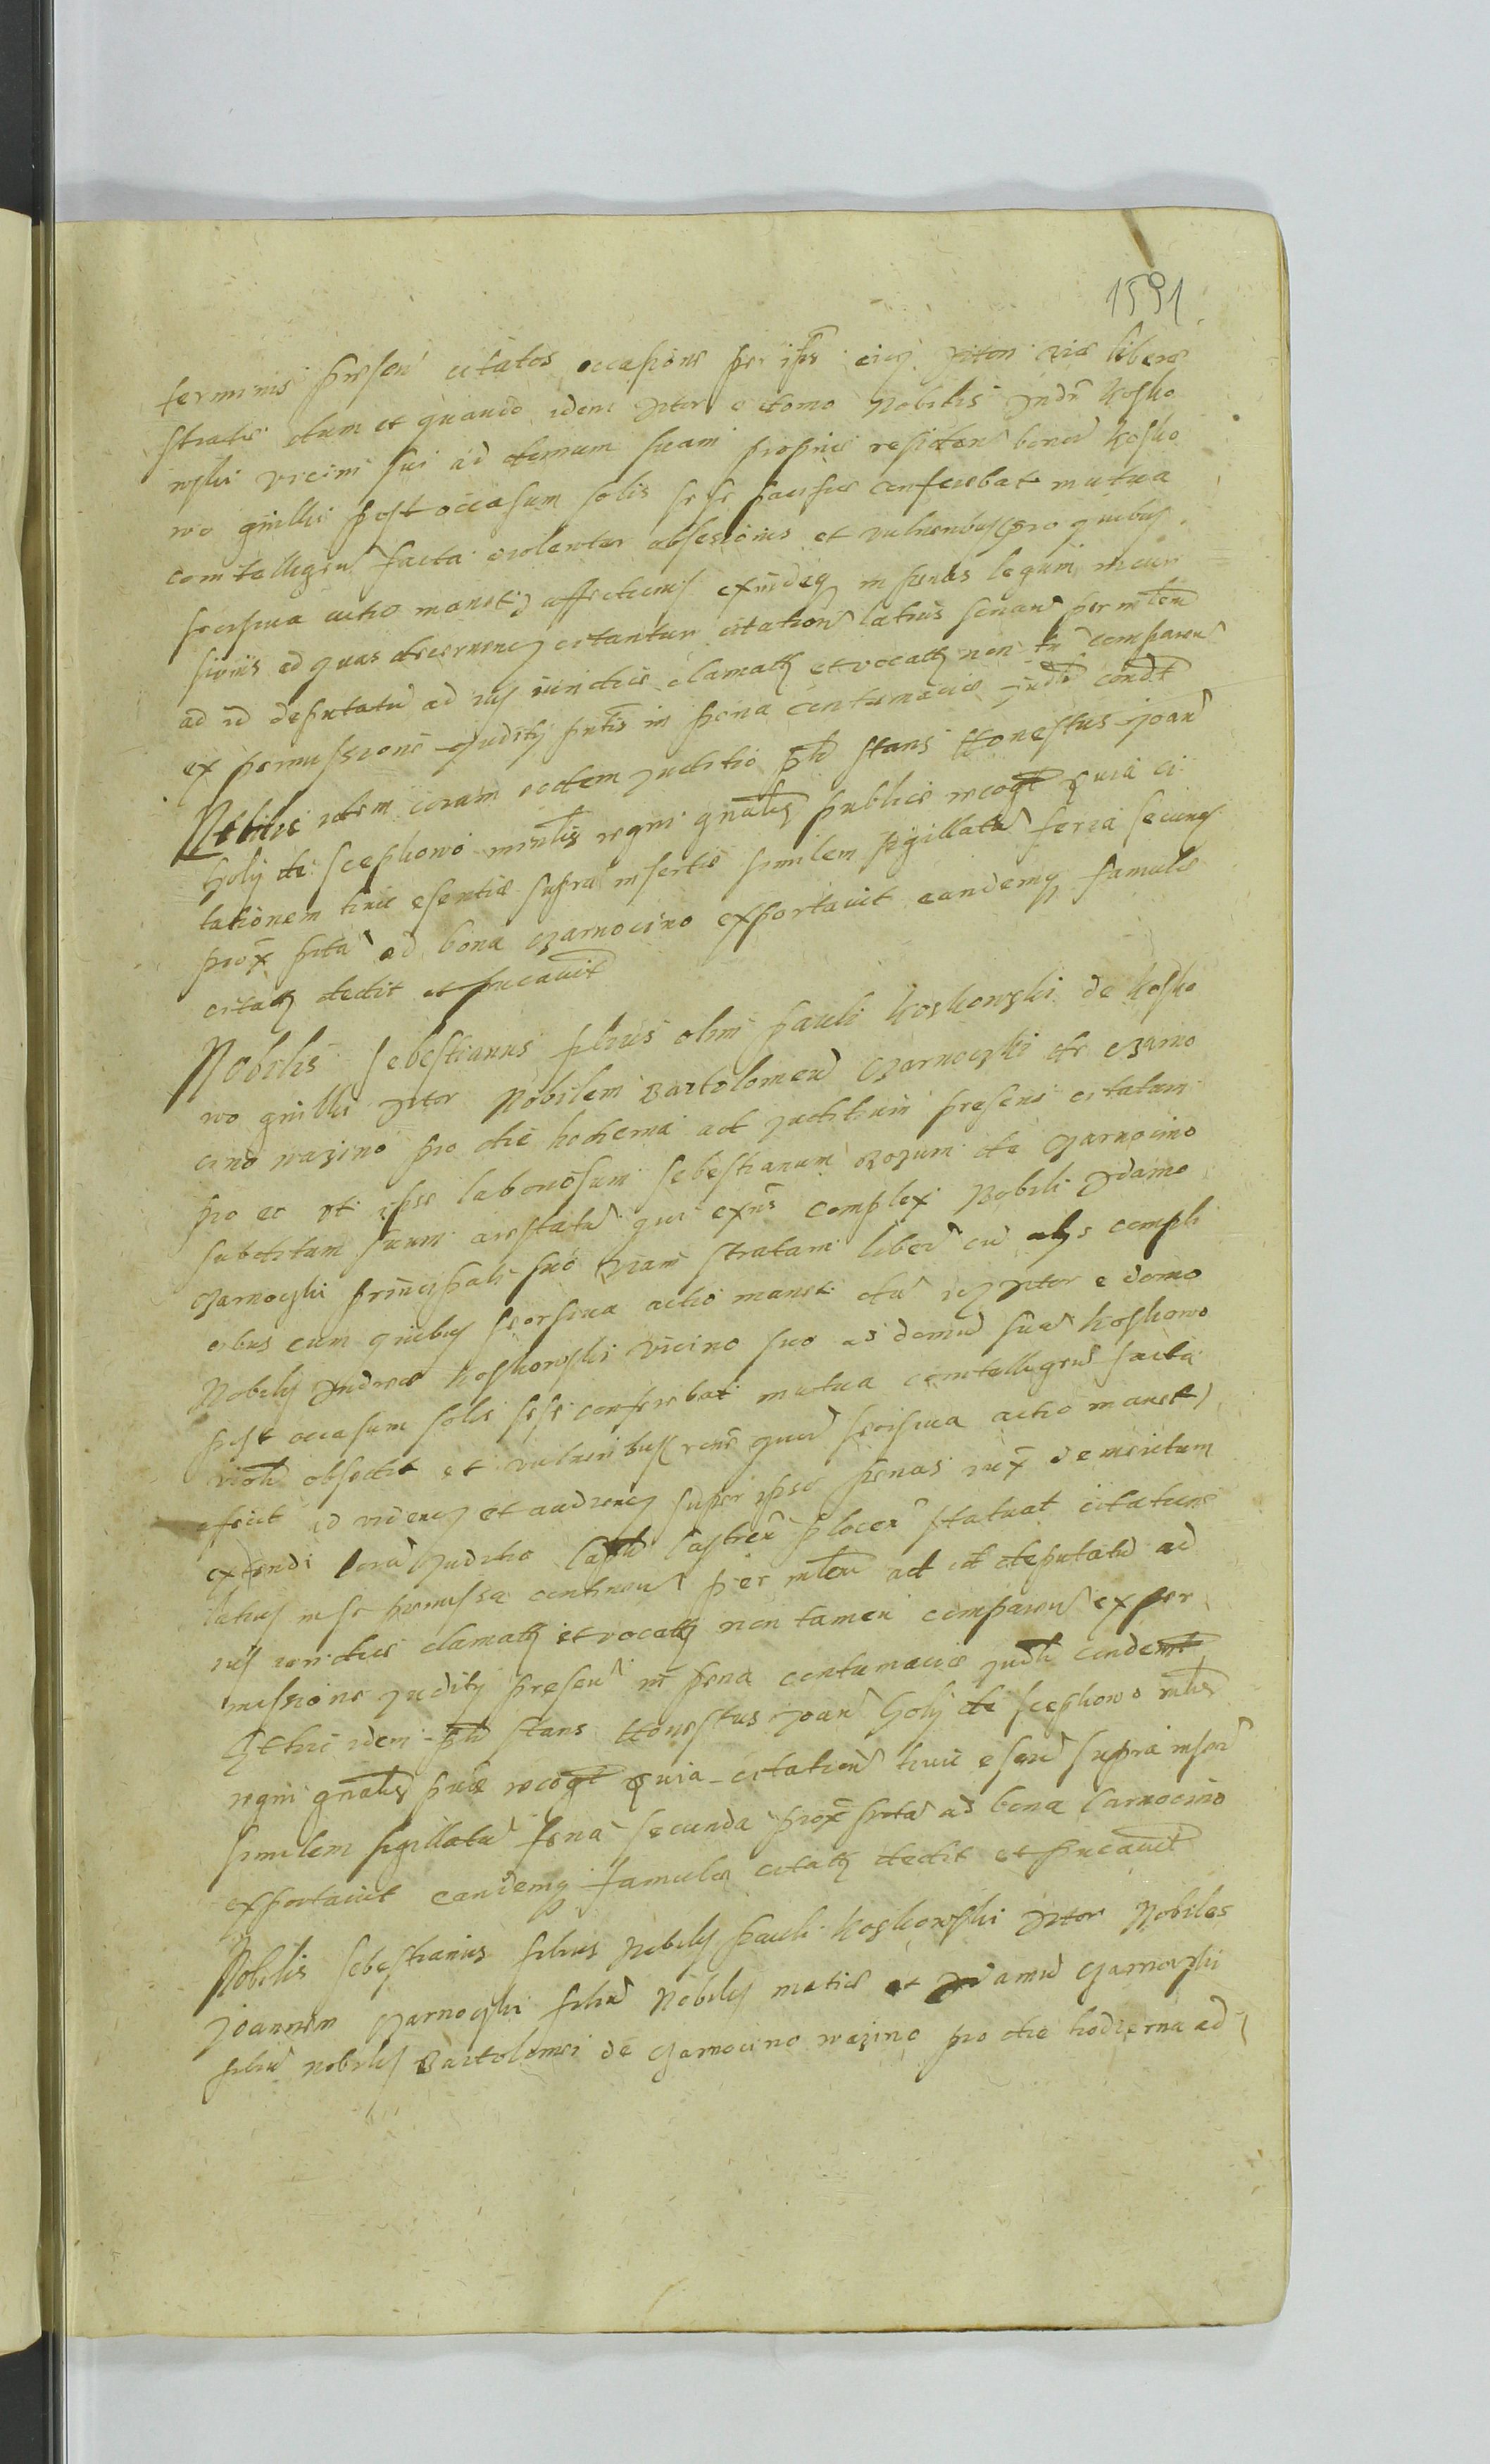 1591
terminis presen citatos occasione per ips eius Actori vie libere
strate dum et quando idem Actor e domo Nobilis Andr Kosko
wski vicini sui ad domum suam proprie residen bonor Kosko
wo gnillki post occasum solis sese pacifice conferebat mutua
comtelligen facta violenter obsessionis et vulneribus pro quibus
seorsiva actio manet affectionis eximdeq in penas legum incur
sionis ad quas decernen citantur citation latius sonan per mlem
ad id deputatu ad ius iuridice clamatos et vocatos non tn comparen
ex permissione Juditij pntis in pena contumacie Judt condt
Ibique idem coram eodem Juditio psl stans Honestus Joan
Goly de Scephowo mintlis regni gnalis publice recogt quia ci
tationem huic esentie supra inserte similem sigillatu feria secunda
prox prta ad bona Czarnocino exportavit eandemq famule
citatos dedit et pucavit
Nobilis Sebestianus filius olim Pauli Koskowski de Kosko
wo gnillki Actor Nobilem Bartolomeu Czarnoczki de Czarno
cino wazino pro die hodierna ad Juditium presens citatum
pro eo ut ipse laboriosum Sebestianum Bozum de Czarnocino
subditum suum arestatu qui exns complex Nobili Adamo
Czarnoczki principali suo viam stratam libera cu alys compli
cibus cum quibus seorsiva actio manet dum is Actor e domo
Nobilis Andree Koskowski vicino suo ad domu sua Koskowo
post occasum solis sese conferebat mutua comtelligen facta
violr obsedit et vulneribus rone quor seorsiva actio manet)
affecit ad viden et audien super ipso penas iux demeritum
extendi cora Juditio Captli Castren Plocen statuat citatione
latius in se premissa continen per mlem ad id deputatu ad
ius iuridice clamatos et vocatos non tamen comparen ex per
missione Juditij presen in pena contumacie Judt condemt
Et hic idem psl stans Honestus Joan Goly de Scephowo mlis
regni gnalis puble recogt quia citation huic esend supra inser
similem sigillatu feria secunda prox prta ad bona Carnocino
exportavit eandemq famule citatos dedit et pucavit
Nobilis Sebestianus filius Nobilis Pauli Koskowski Actor Nobiles
Joannem Czarnoczki filiu Nobilis Matie et Adamu Czarnoczki
filiu Nobilis Bartolomei de Czarnocino wazino pro die hodierna ad